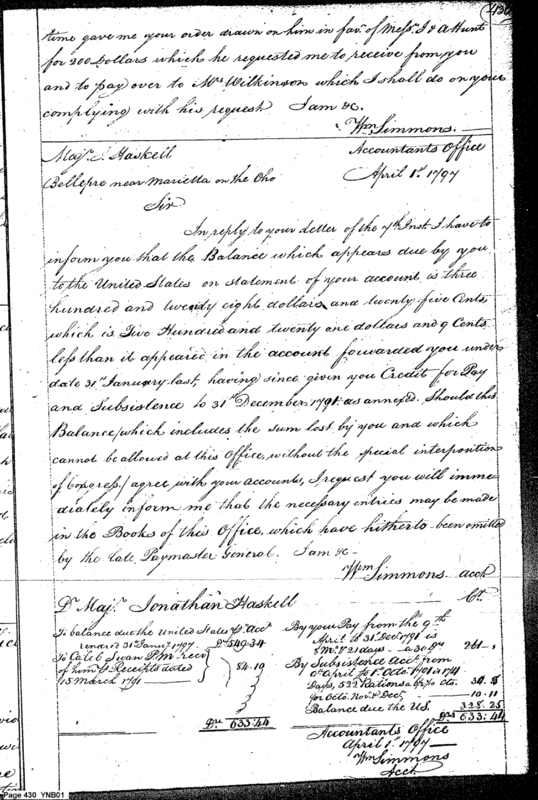 430
time gave me your order drawn on him in fav.r of Mess.rs J & A Hunt
for 200 Dollars which he requested me to receive from you
and to pay over to Mrs Wilkinson which I shall do on your
complying with his request I am &c.
Wm Simmons.
Majr. J. Haskell
Accountants Office
Bellepre near Marietta on the Oho
April 1st 1797
Sir
In reply to your Letter of the 7th Inst. I have to
inform you that the Balance which appears due by you
to the United States on statement of your account is three
hundred and twenty eight dollars and twenty five Cents,
which is Two Hundred and twenty one dollars and 9 Cents
less than it appeared in the account forwarded you under
date 31st January last, having since given you Credit for Pay
and Subsistence to 31st December 1791 as annexed. Should this
Balance (which includes the sum lost by you and which
cannot be allowed at this Office, without the special interposition
of Congress) agree with your accounts, I request you will imme-
diately inform me that the necessary entries may be made
in the Books of this Office, which have hitherto been omitted
by the late Paymaster General. I am &c -
Wm Simmons acct
Dr Majr. Jonathan Haskell Cr.
To balance due the United States pr. Acct
31 Jany 1797 Ds 549.34
To Caleb Swan P.M. recd
of him pr Receipts dated
15 March 1791 84.10
Drs 633.44
By your Pay from the 9th
April to 31 Decr 1791 is
8 Mos & 21 days @ 30 Drs 261 -
By Subsistence Acct. from
April to 1st Octr. 1791
Days, 522 Rations cts. 34.
for Octr. Nov. & Decr. 10.11
Balance due the U.S. 328.25
Drs 633.44
Accountants Office
April 1st 1797
Wm Simmons
Acct.
Page 430 YNB01